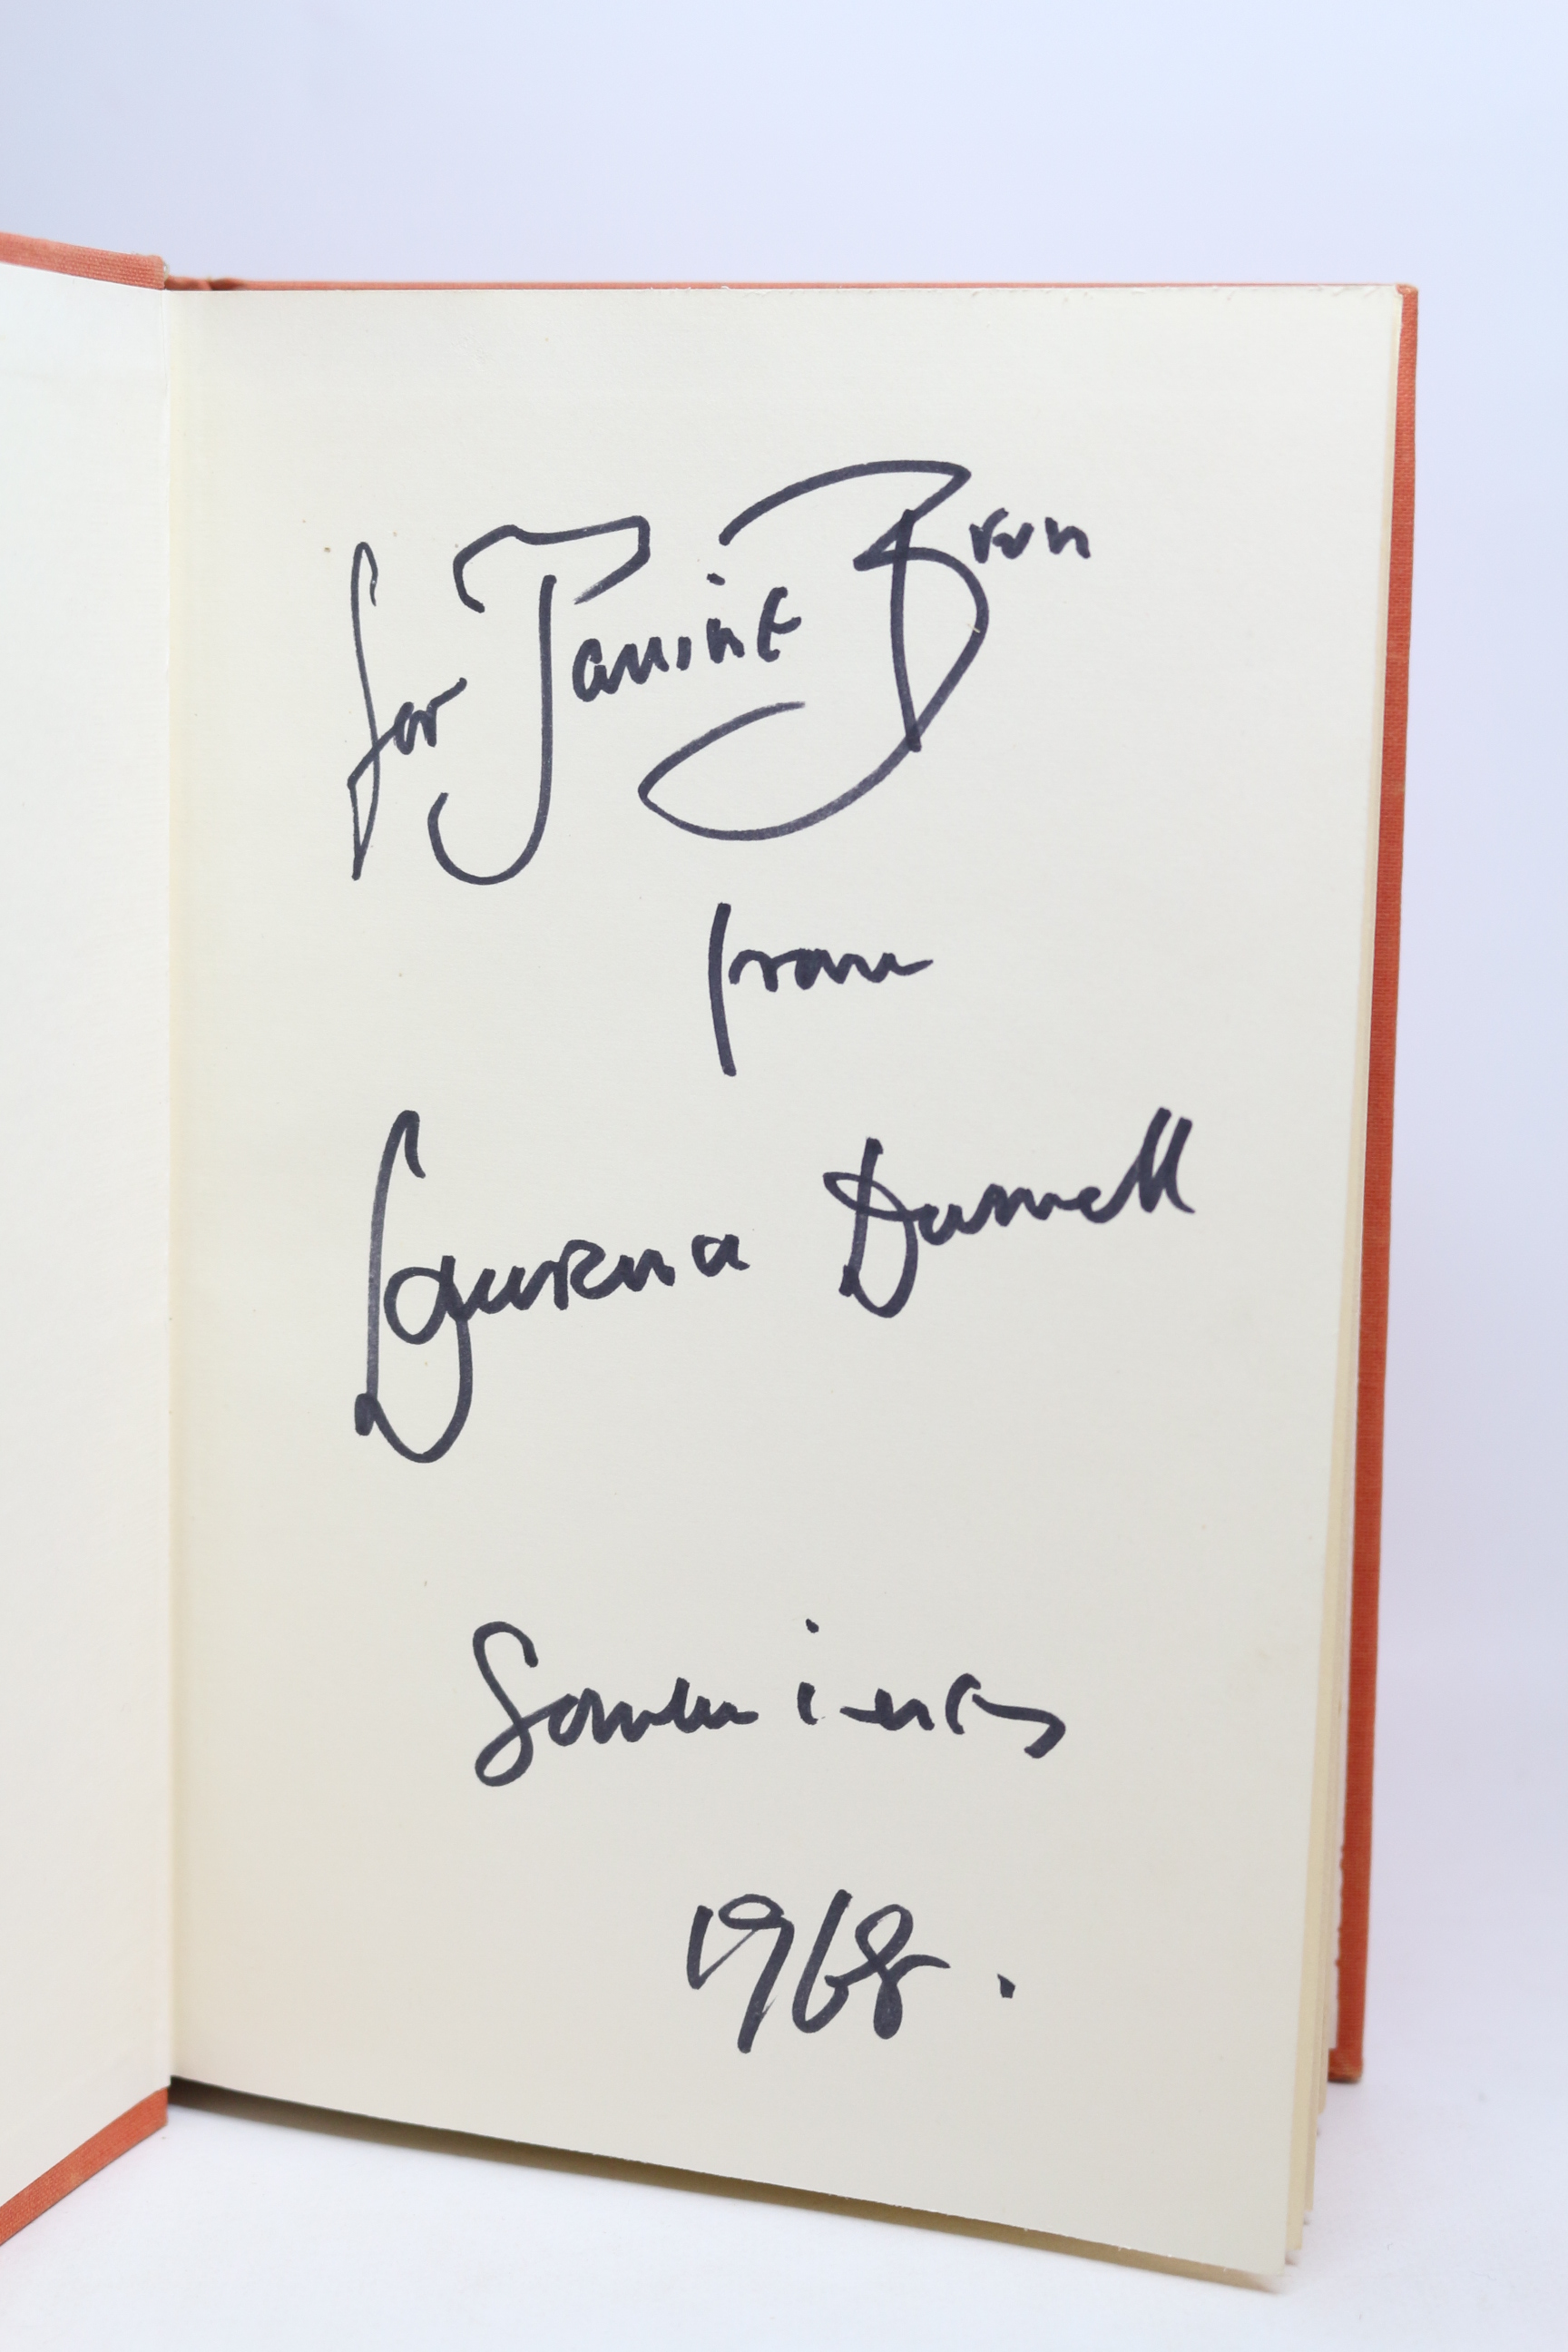 for Janine Brun
from
Lawrence Durrell
Sommières
1968.